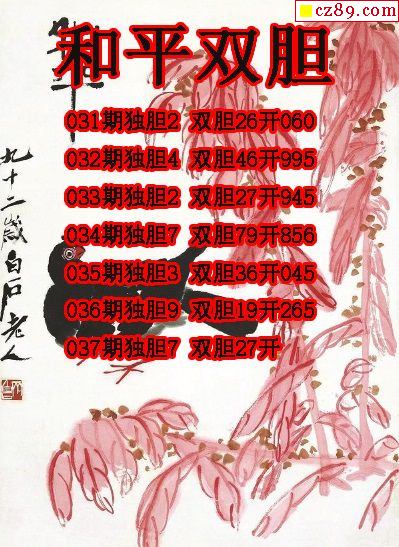 cz89.com
和平
和平双胆
031期独胆2 双胆26开060
032期独胆4 双胆46开995
033期独胆2 双胆27开945
034期独胆7 双胆79开856
035期独胆3 双胆36开045
036期独胆9 双胆19开265
037期独胆7 双胆27开
九十二岁白石老人